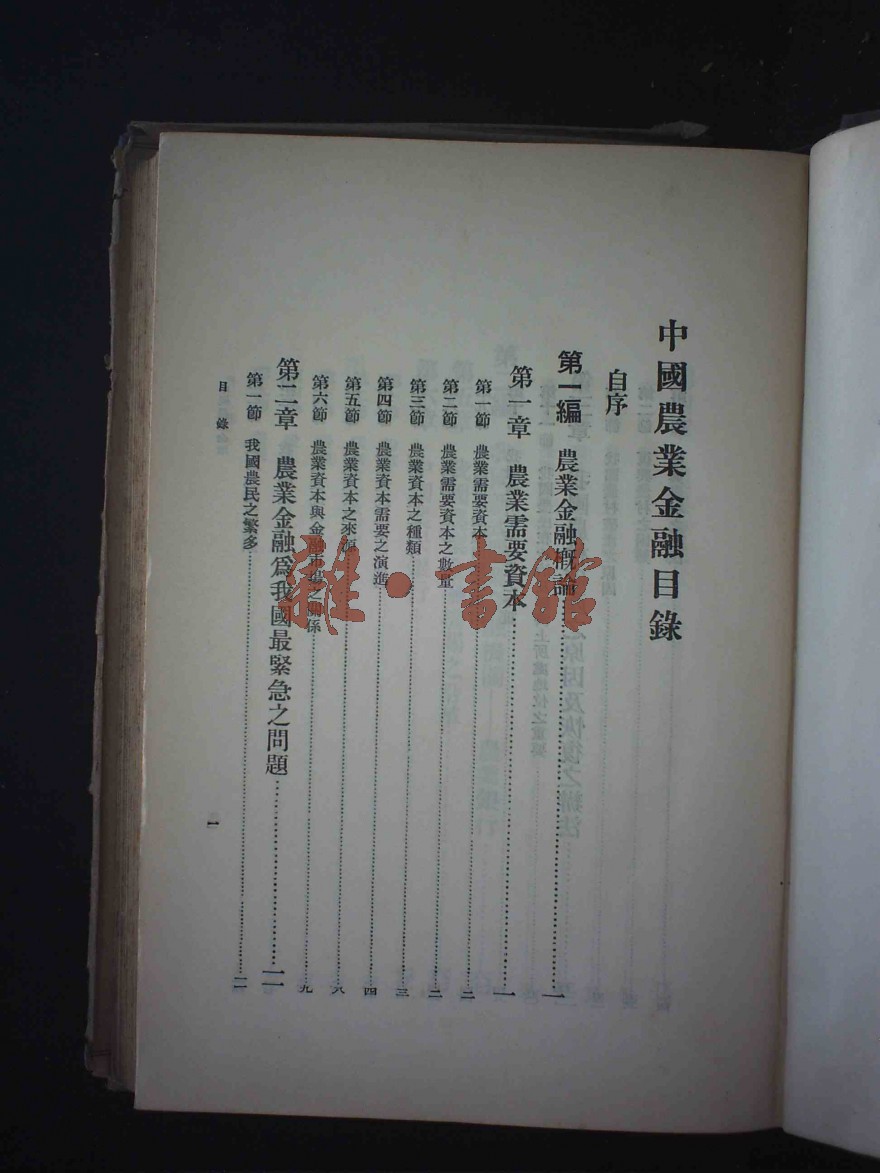 中國農業金融目錄
自序
第一編 農業金融概論……一
第一章 農業需要資本……一
第一節 農業需要資本……二
第二節 農業需要資本之數量……二
第三節 農業資本之種類……三
第四節 農業資本需要之演進……四
第五節 農業資本之來源……八
第六節 農業資本與金融市場之關係……九
第二章 農業金融爲我國最緊急之問題……一一
第一節 我國農民之繁多……一一
目錄
一
雜·書館